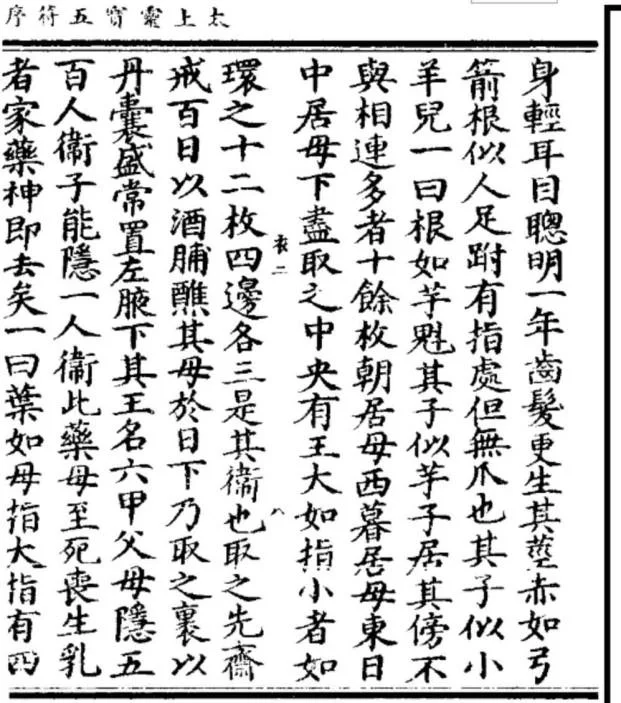 太上靈寶五符序
身輕耳目聰明一年齒髮更生其莖赤如弓
箭根似人足跗有指處但無爪也其子似小
羊兒一曰根如芋魁其子似芋子居其傍不
與相連多者十餘枚朝居母西暮居母東日
中居母下盡取之中央有王大如指小者如
衣二 八
環之十二枚四邊各三是其衞也取之先齋
戒百日以酒脯醮其母於日下乃取之裹以
丹囊盛常置左腋下其王名六甲父母隱五
百人衞子能隱一人衞此藥母至死喪生乳
者家藥神即去矣一曰葉如母指大指有四